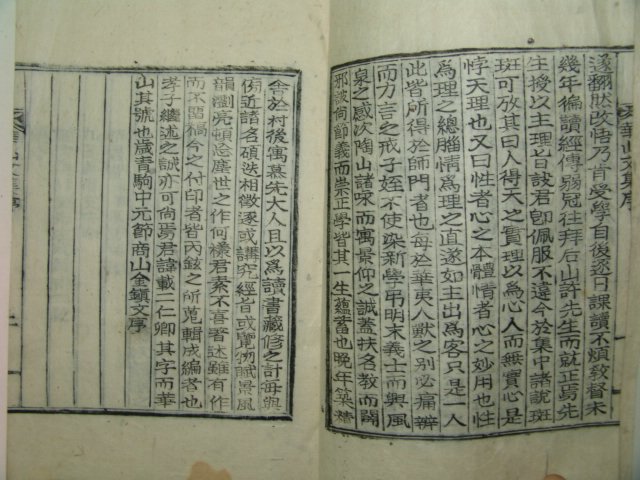 遂翻然改悟乃肯受學自後逐日課讀不煩敎督未
幾年徧讀經傳弱冠往拜后山許先生而就正焉先
生授以主理旨訣君卽佩服不違今於集中諸說班
班可放其曰人得天之實理以爲心人而無實心是
悖天理也又曰性者心之本體情者心之妙用也性
爲理之總腦情爲理之直遂如主出爲客只是一人
此皆所得於師門者也每於華夷人獸之別必痛辨
而力言之戒子姪不使染新學弔明末義士而興風
泉之感次陶山諸咏而寓景仰之誠蓋扶名敎而闢
邪詖尙節義而崇正學皆其一生蘊蓄也晩年築精
華山文集序
舍於村後寓慕先大人且以爲讀書藏修之計每與
傍近諸名碩迭相徵逐或講究經旨或覽物賦景風
韻瀏亮頓忘塵世之作何樣君素不喜著述雖有作
而不留稿今之付印者皆內鉉之所蒐輯成編者也
孝子繼述之誠亦可尙焉君諱載二仁卿其字而華
山其號也歲靑駒中元節商山金鎭文序